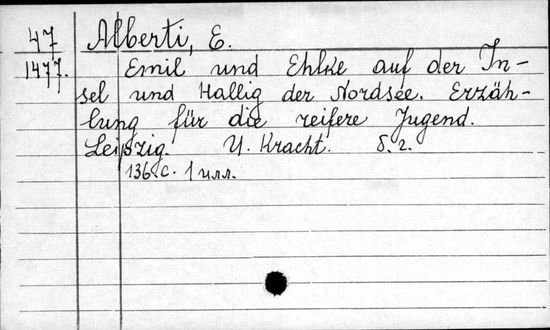 47 Alberti, E.
1477. Emil und Ehlke auf der In-
sel und Hallig der Nordsee. Erzäh-
lung für die reifere Jugend.
Leipzig. U. Kracht. б. г.
136 с. 1 илл.